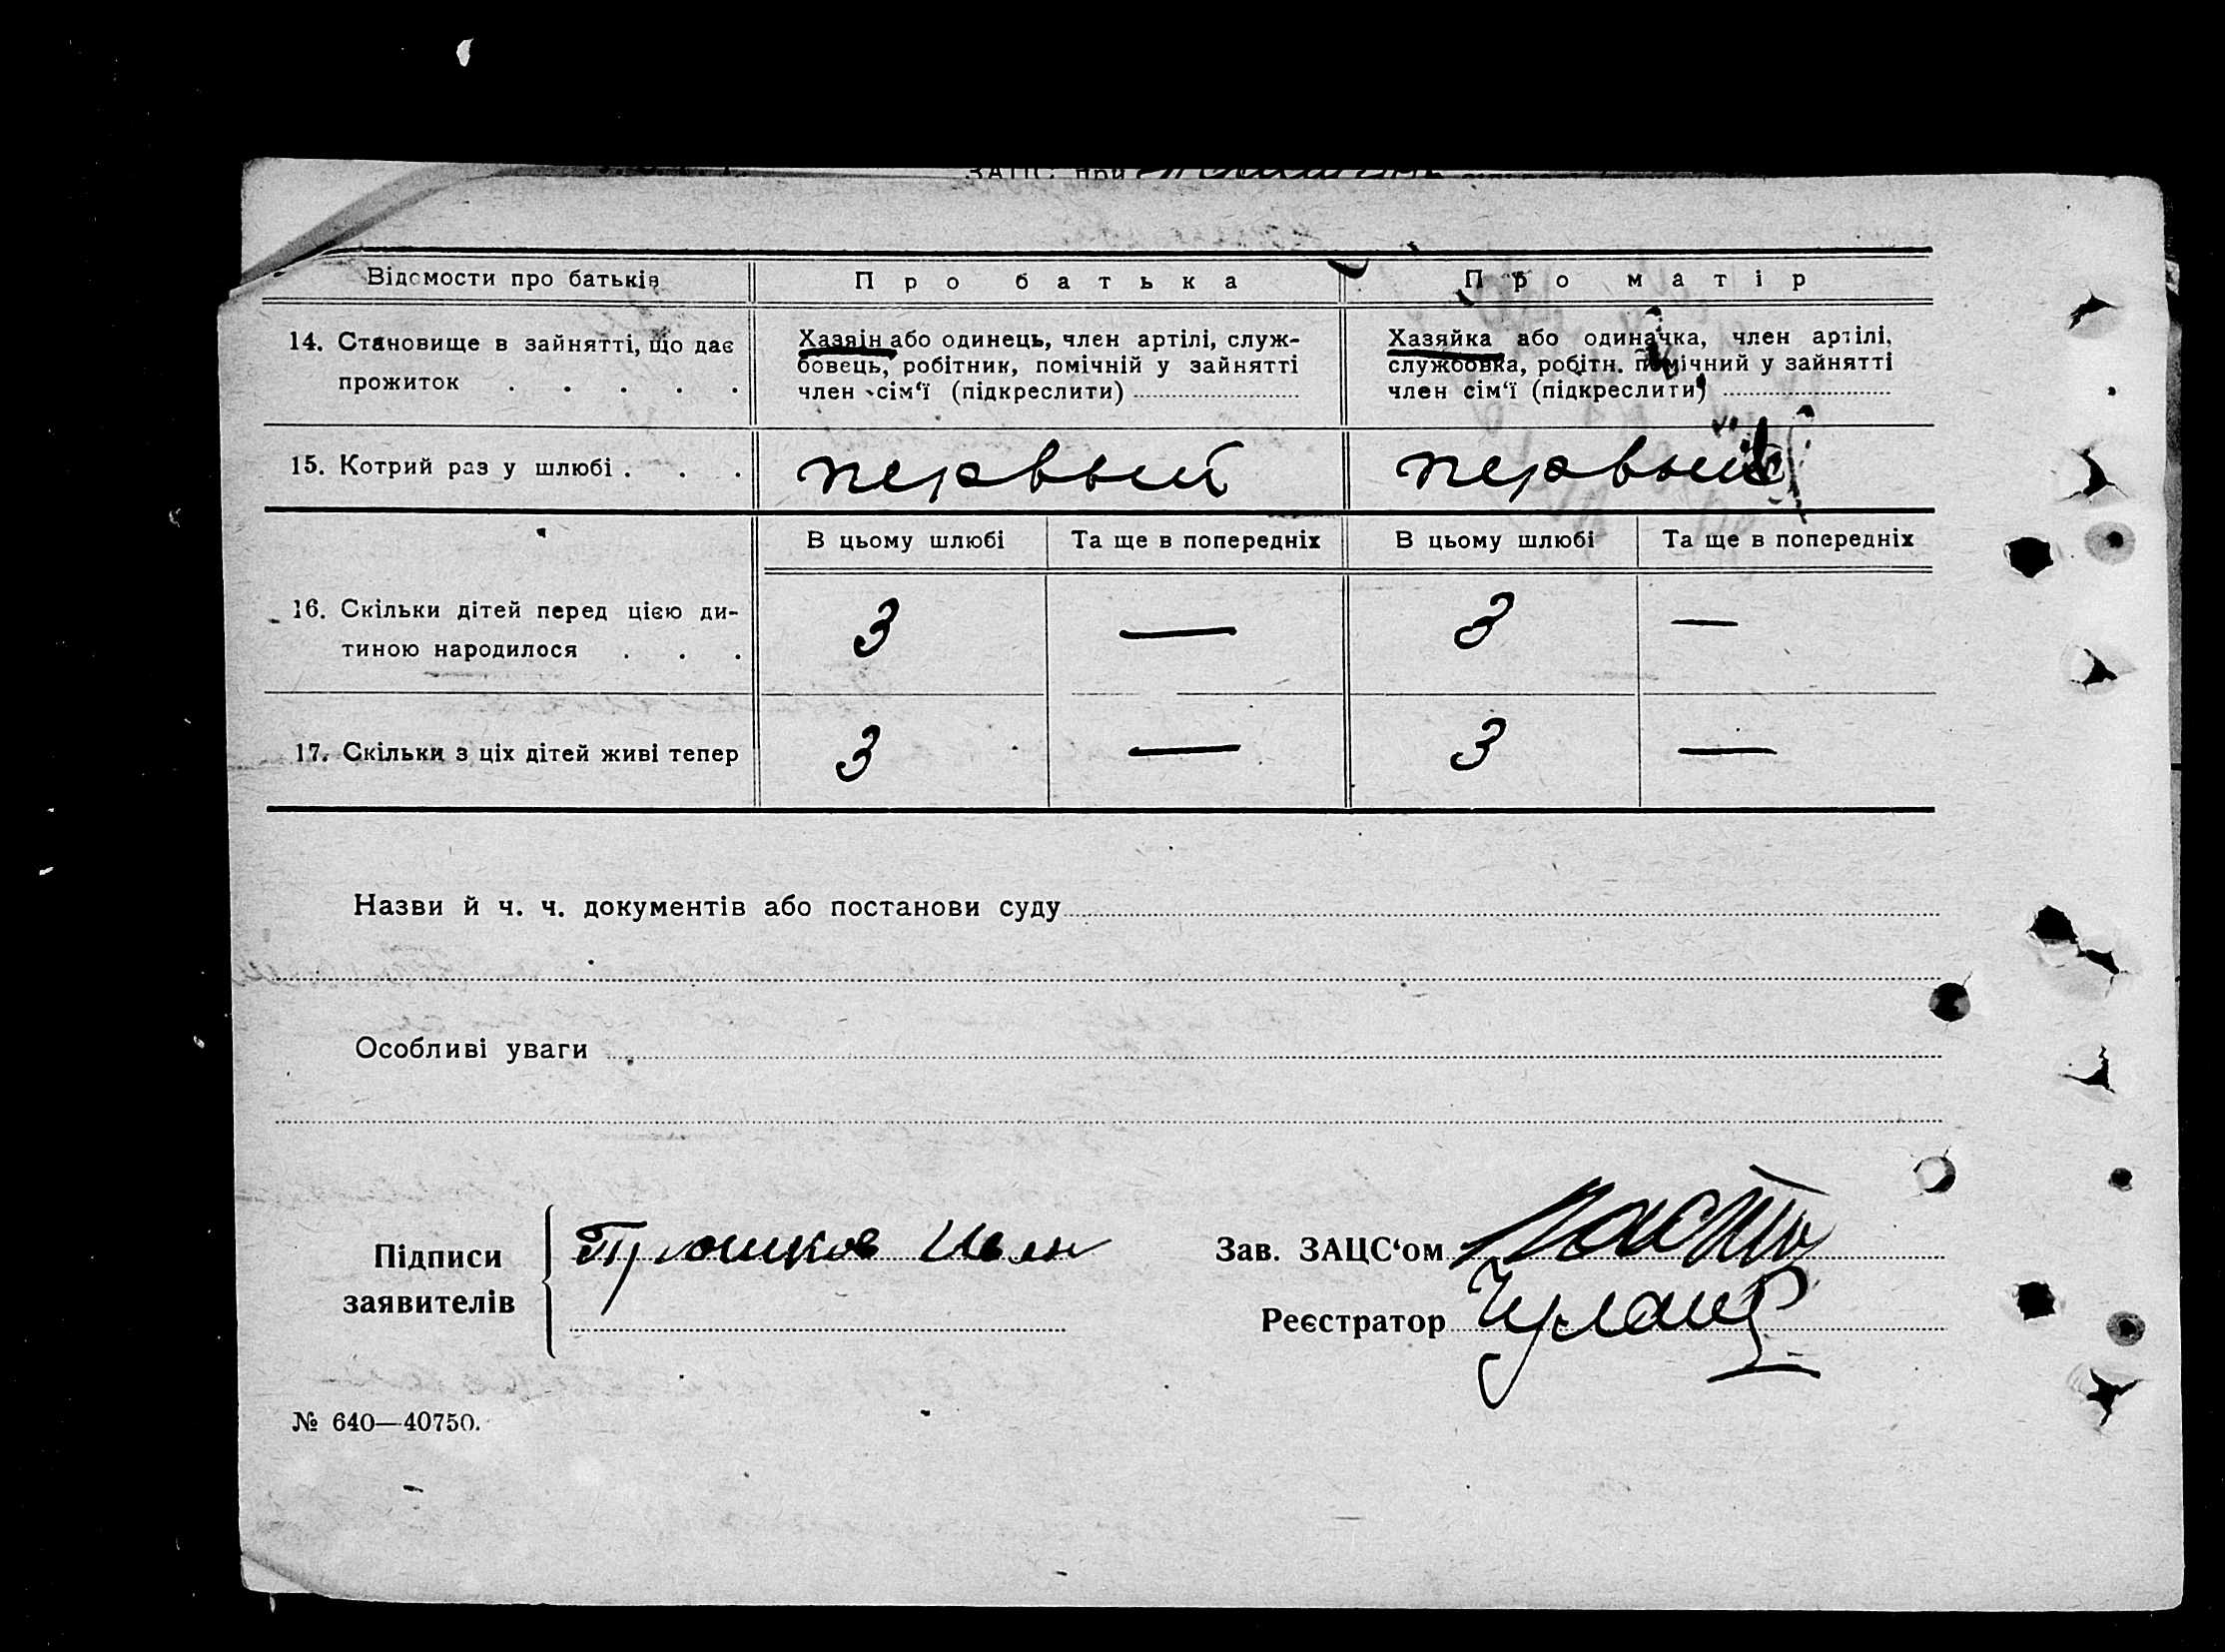 ЗАЦС при
Відомости про батьків Про батька Про матір
14. Становище в зайнятті, що дає прожиток . . . . .
Хазяін або одинець, член артілі, служ-
бовець, робітник, помічній у зайнятті
член сім‘ї (підкреслити)
Хазяйка або одиначка, член артілі,
службовка, робітн. помічний у зайнятті
член сім‘ї (підкреслити)
15. Котрий раз у шлюбі . . . первый первый
В цьому шлюбі Та ще в попередніх В цьому шлюбі Та ще в попередніх
16. Скільки дітей перед цією ди-
тиною народилося . . . 3 — 3 —
17. Скільки з ціх дітей живі тепер 3 — 3 —
Назви й ч. ч. документів або постанови суду
Особливі уваги
Підписи
заявителів
Трошков Иван
Зав. ЗАЦС‘ом
Реєстратор
№ 640—40750.